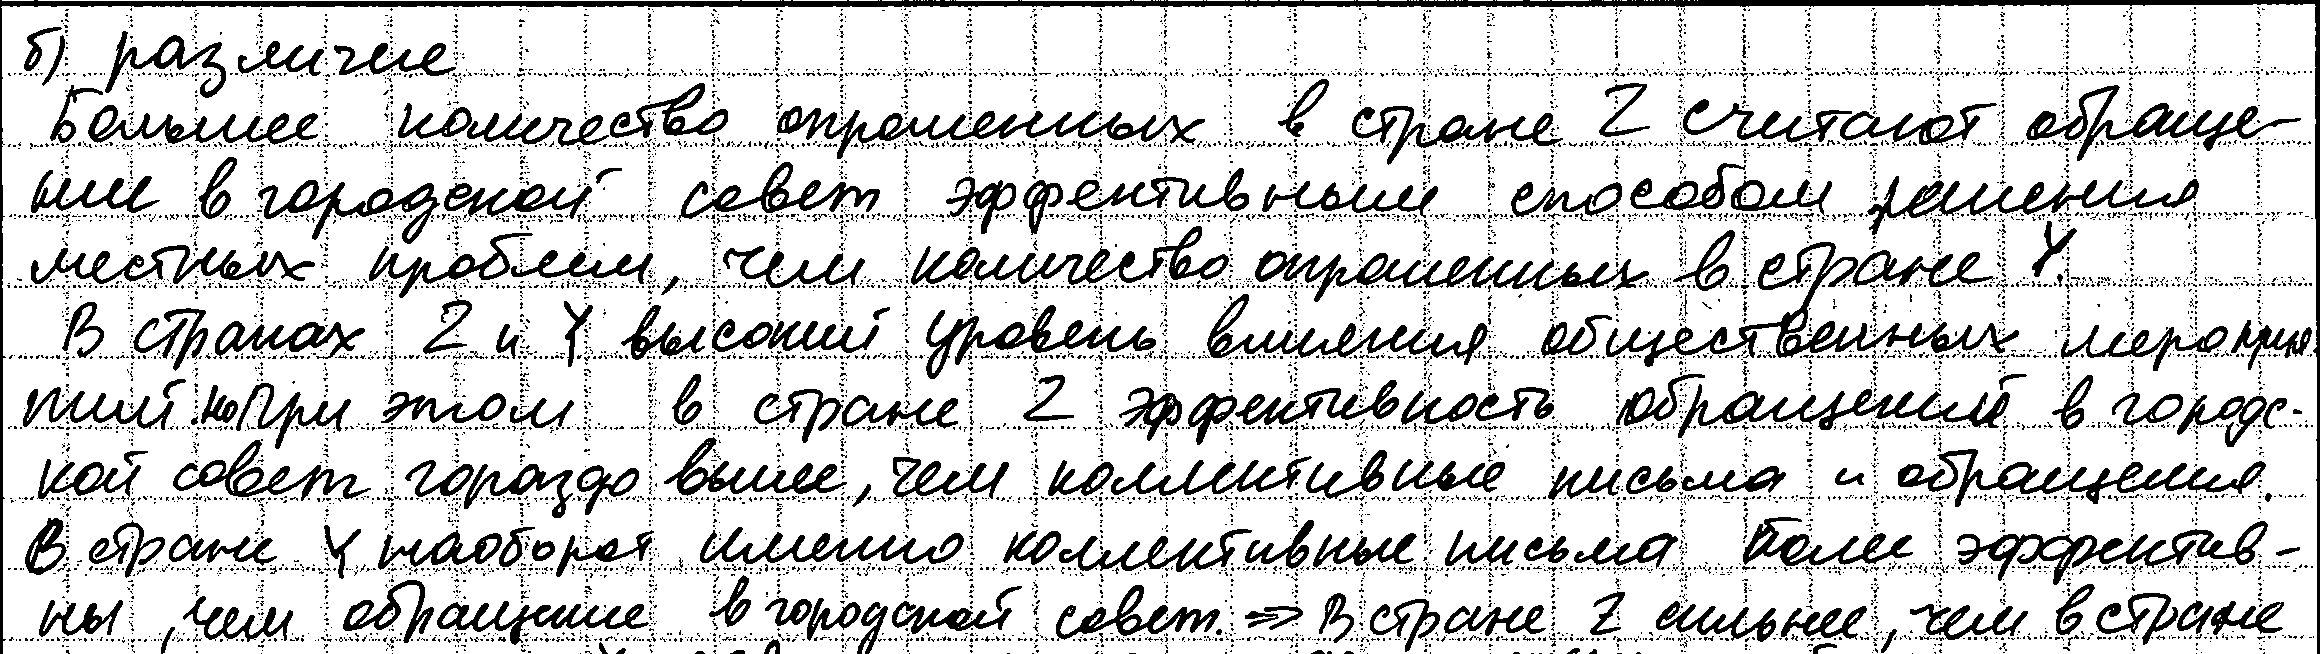 б) различие
Большее количество опрошенных в стране Z считают обраще-
ние в городской совет эффективным способом решения
местных проблем, чем количество опрошенных в стране Y.
В странах Z и Y высокий уровень влияния общественных меропри-
тий. Но При этом в стране Z эффективность обращений в городс-
кой совет гораздо выше, чем коллективные письма и обращения.
В стране Y наоборот именно коллективные письма более эффектив-
ны, чем обращение в городской совет. => В стране Z сильнее, чем в стране